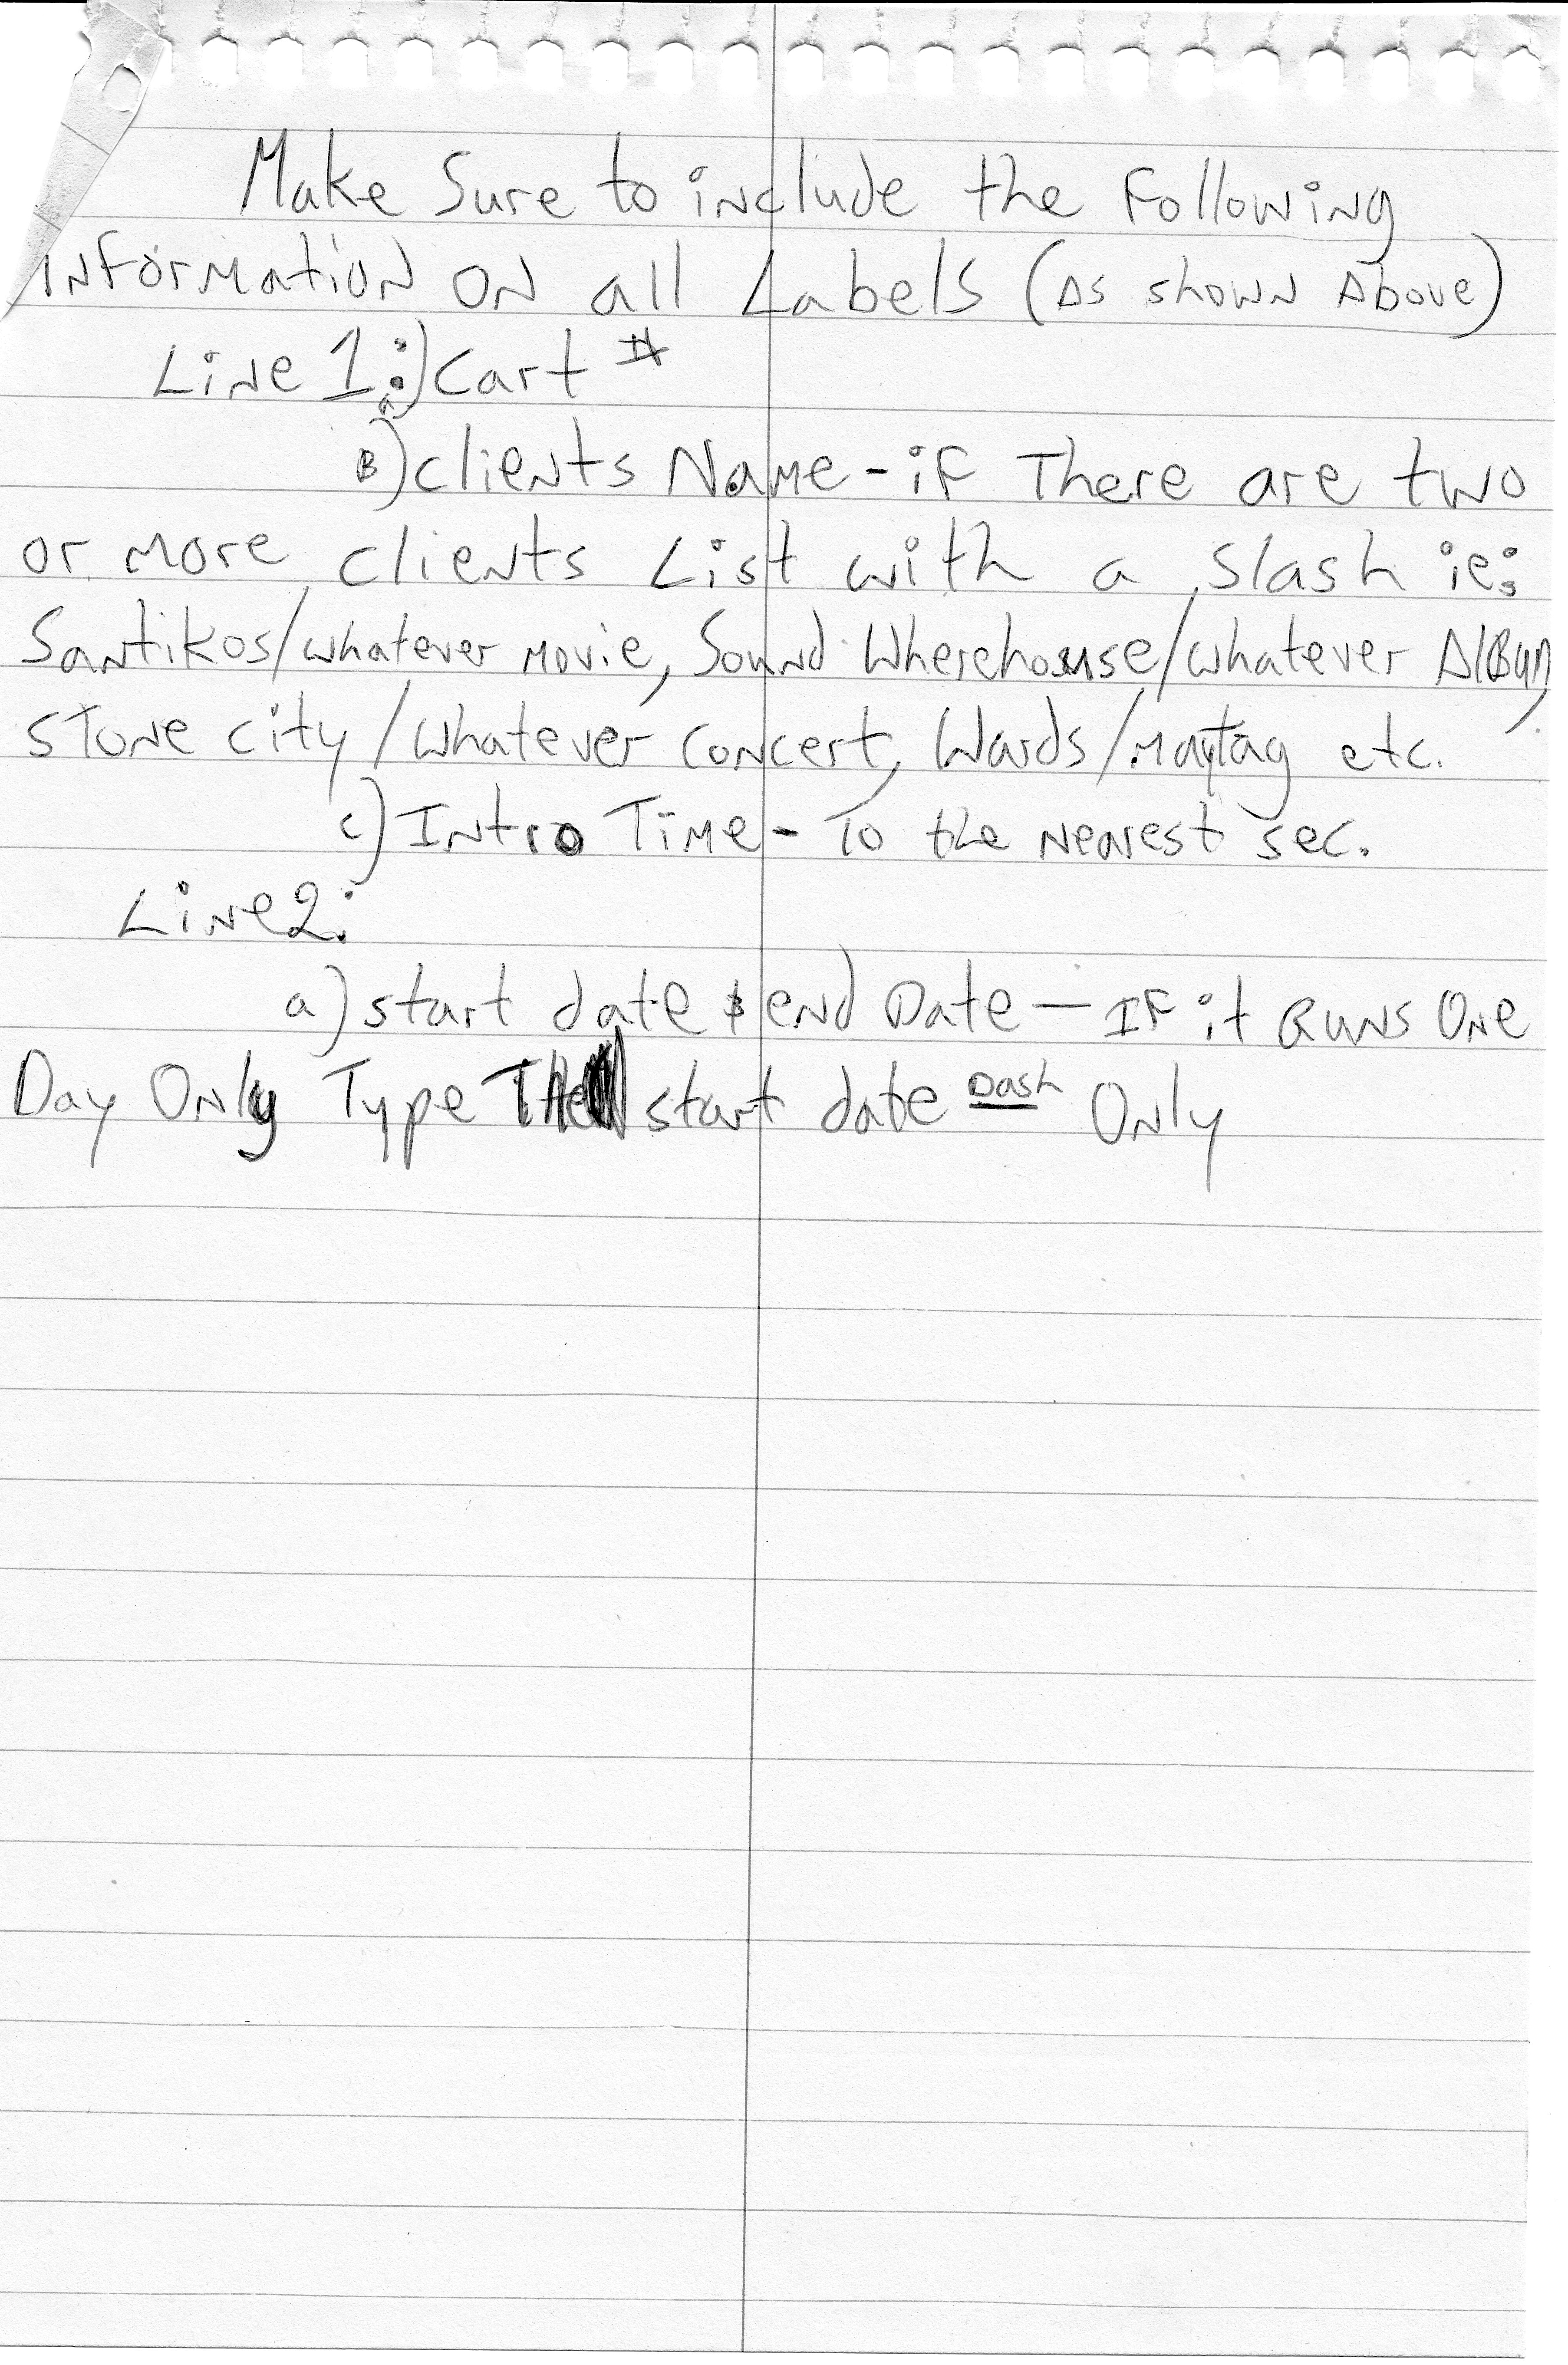 Make Sure to include the Following
information on all Labels (As shown Above)
Line 1: a) Cart #
B) clients Name - if There are two
or more clients List with a slash ie:
Santikos/whatever movie, Sound Wherehouse/whatever Album,
Stone city/whatever concert, Wards/Maytag etc.
c) Intro Time - To the nearest sec.
Line 2:
a) start date & end Date — IF it Runs One
Day Only Type The start date Dash Only